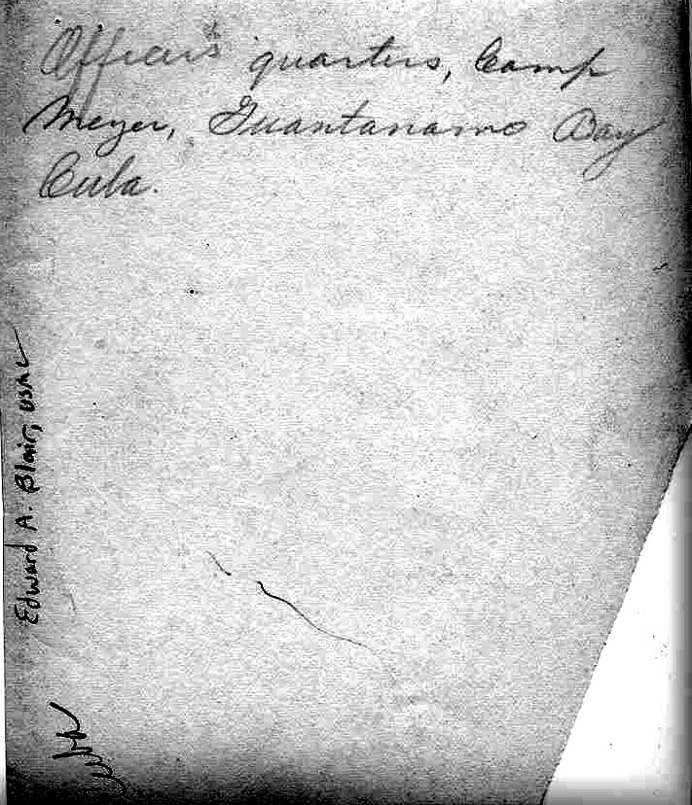 Officer's quarters, Camp
Meyer, Guantanamo Bay
Cuba.
Edward A. Blair, USMC